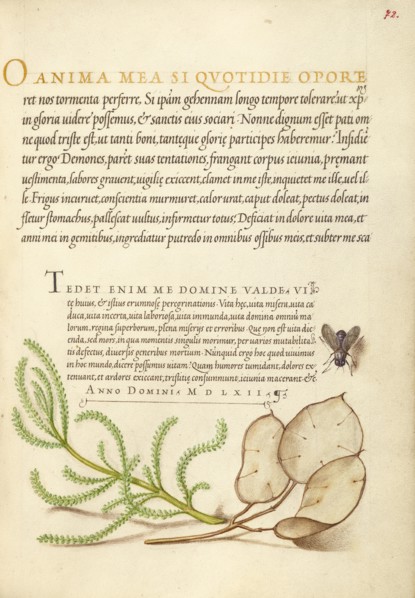 72.
O ANIMA MEA SI QVOTIDIE OPORTE
ret nos tormenta perferre, Si ipām gehennam longo tempore tolerare, ut xp̄m
in gloria videre possemus, & sanctis eius sociari. Nonne dignum esset pati om
ne quod triste est, ut tanti boni, tantęque glorię participes haberemur? Insidiē
tur ergo Demones, parēt suas tentationes, frangant corpus ieiunia, pręmant
vestimenta, labores grauent, vigilię exiccent, clamet in me iste, inquietet me ille, uel il-
le. Frigus incuruet, conscientia murmuret, calor urat, caput doleat, pectus doleat, in
fletur stomachus, pallescat uultus, infirmetur totus; Deficiat in dolore vita mea, et
anni mei in gemitibus, ingrediatur putredo in omnibus ossibus meis, et subter me sca
TEDET ENIM ME DOMINE VALDE VI
tę huius, & istius erumnosę peregrinationis. Vita hęc, vita misera, vita ca
duca, vita incerta, vita laboriosa, vita immunda, vita domina omniū ma
lorum, regina superborum, plena miserijs et erroribus. Que non est vita dic
enda, sed mors, in qua momentis singulis morimur, per varios mutabilita
tis defectus, diuersis generibus mortium. Nunquid ergo hoc quod uiuimus
in hoc mundo, dicere possemus vitam? Quam humores tumidant, dolores ex
tenuant, et ardores exiccant, tristitię consummunt, ieiunia macerant. &c
ANNO DOMINI M D LXII